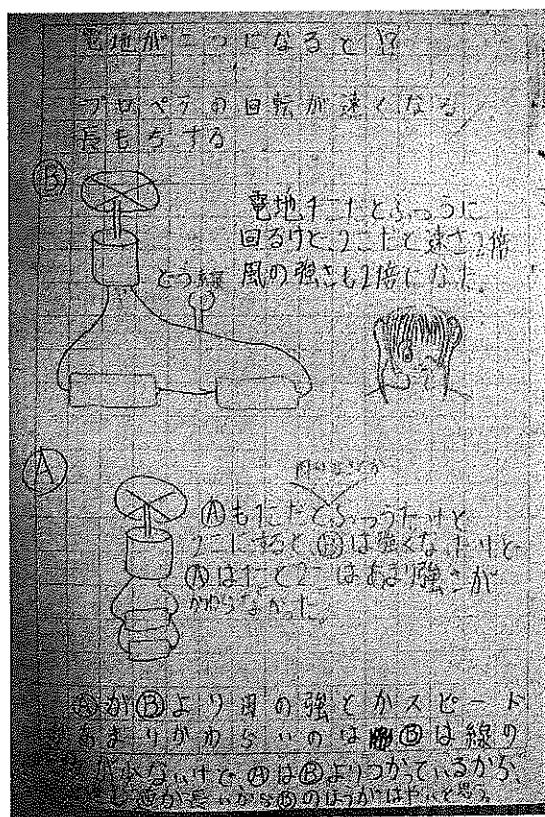 電地が二つになると!?
プロペラの回転が速くなる
長もちする
Ⓑ
電地1こだとふつうに
回るけど、2こだと速さ2倍
風の強さも2倍になた。
どう線
Ⓐ
Ⓐも1こだとふつうだけど
2こにすると、Ⓑは強くなたけど
Ⓐは1こと2こはあまり強さが
かわらなかった。
ⒶがⒷより風の強さとかスピード
あまりかわらいのはⒷは線の
が少ないけど、ⒶはⒷよりつかっているから、
が長いからⒷのほうがはやいと思う。